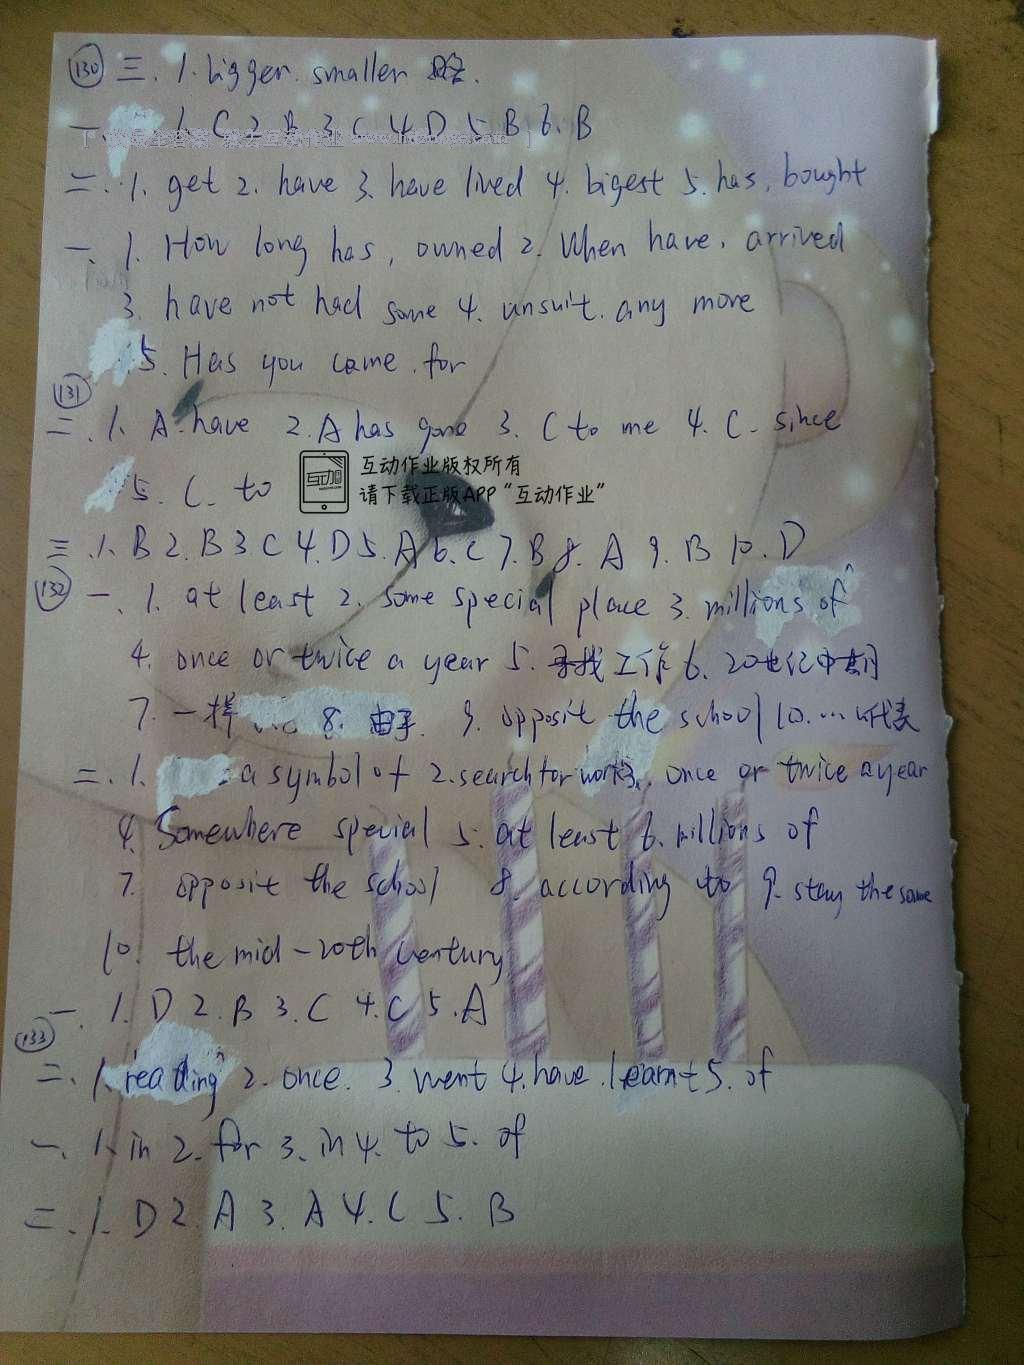 130 三. 1. bigger. smaller 略.
一. 1. C 2. B 3. C 4. D 5. B 6. B
二. 1. get 2. have 3. have lived 4. bigest 5. has, bought
一. 1. How long has, owned 2. When have, arrived
3. have not had some 4. unsuit. any more
5. Has you came for
131
二. 1. A. have 2. A has gone 3. C to me 4. C. since
5. C. to
互动作业版权所有
请下载正版APP“互动作业”
三. 1. B 2. B 3 C 4. D 5. A 6. C 7. B 8. A 9. B 10. D
132 一. 1. at least 2. some special place 3. millions of
4. once or twice a year 5. 寻找工作 6. 20世纪中期
7. 一样 8. 由于. 9. opposit the school 10. ...代表
二. 1. a symbol of 2. search for work 3. once or twice a year
4. Somewhere special 5. at least 6. millions of
7. opposit the school 8. according to 9. stay the same
10. the mid-20th century
一. 1. D 2. B 3. C 4. C 5. A
133
二. 1. reading 2. once. 3. went 4. have. learnt 5. of
一. 1. in 2. for 3. in 4. to 5. of
二. 1. D 2. A 3. A 4. C 5. B